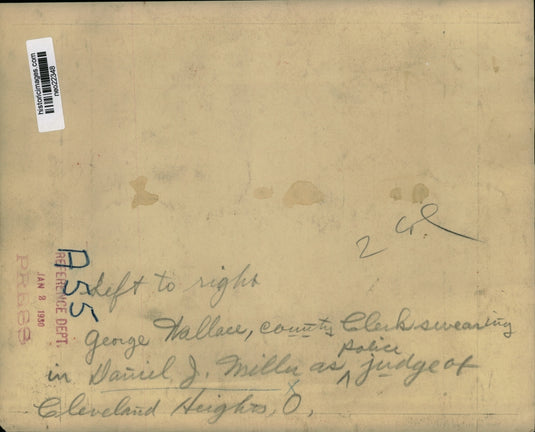 historicimages.com
neo22348
2 cl.
A55
REFERENCE DEPT.
JAN 8 1930
PRESS
Left to right
George Wallace, county Clerk swearing
in Daniel J. Miller as police judge of
Cleveland Heights, O.